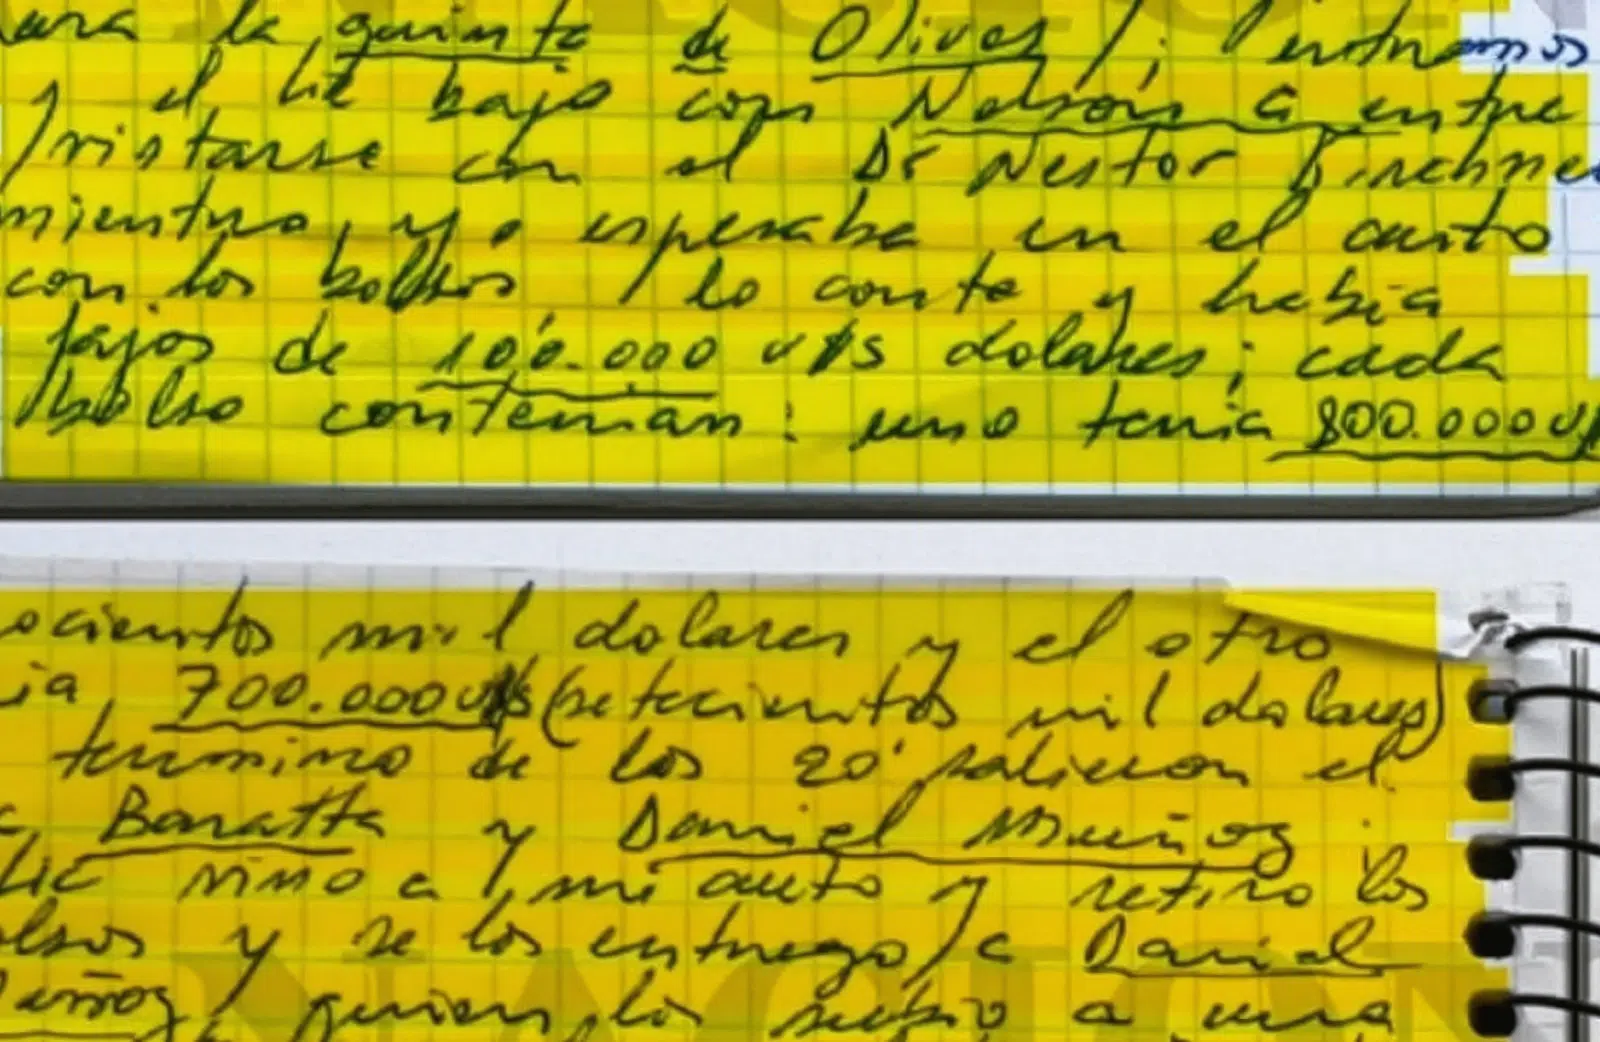 la quinta de Olivos / ; entramos
y el Lic bajo con Nelson a entre
/vistarse con el Dr Nestor Kirchne
mientras, yo esperaba en el auto
con los bolsos / lo conte y habia
fajos de 100.000 U$S dolares; cada
bolso contenian: uno tenia 800.000 U$
ocientos mil dolares y el otro
ia 700.000 U$S (setecientos mil dolares)
termino de los 20' salieron el
c Baratta y Daniel Muñoz;
Lic vino a mi auto y retiro los
olsos y se los entrego / a Daniel
uñoz, quien los subio a una
NACION